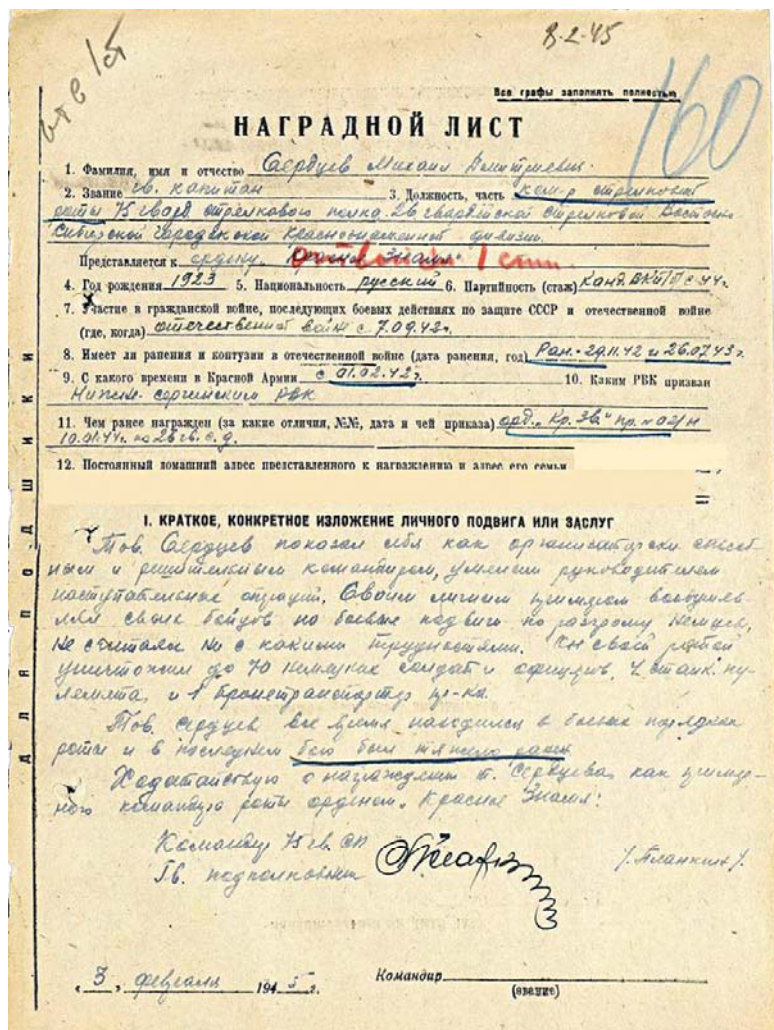 8-2-45
160
Все графы заполнять полностью
НАГРАДНОЙ ЛИСТ
1. Фамилия, имя и отчество Сердцев Михаил Дмитриевич
2. Звание гв. капитан 3. Должность, часть ком-р стрелковой
роты 75 гвард стрелкового полка 26 гвардейской стрелковой Восточно
Сибирской Городокской краснознаменной дивизии.
Представляется к ордену "Красное Знамя" Отвойна 1 степ.
4. Год рождения 1923 5. Национальность русский 6. Партийность (стаж) Канд. ВКП/б/ с 44г.
7. Участие в гражданской войне, последующих боевых действиях по защите СССР и отечественной войне
(где, когда) отечественной войне с 7.09.42г.
8. Имеет ли ранения и контузии в отечественной войне (дата ранения, год) Ран.- 29.11.42 и 26.07.43г.
9. С какого времени в Красной Армии с 01.02.42г. 10. Каким РВК призван
Нижне-сергинским РВК
11. Чем ранее награжден (за какие отличия, №№, дата и чей приказа) орд. "Кр. Зв." пр. № 02/н
10.01.44г. по 26 гв. с.д.
12. Постоянный домашний адрес представленного к награждению и адрес его семьи
ДЛЯ ПОДШИВКИ
I. КРАТКОЕ, КОНКРЕТНОЕ ИЗЛОЖЕНИЕ ЛИЧНОГО ПОДВИГА ИЛИ ЗАСЛУГ
Тов. Сердцев показал себя как организаторски способ-
ным и решительным командиром, умелым руководителем
наступательных операций. Своим личным примером воодушев-
лял своих бойцов на боевые подвиги по разгрому немцев,
не считаясь ни с какими трудностями. Он своей ротой
уничтожил до 70 немецких солдат и офицеров, 4 станк. пу-
лемета, и 1 бронетранспортер пр-ка.
Тов. Сердцев все время находился в боевых порядках
роты и в последнем бою был тяжело ранен
Ходатайствую о награждении т. Сердцева, как пример-
ного командира роты орденом "Красное Знамя".
Командир 75 гв. СП
Гв. подполковник
"3" февраля 1945 г.
Командир
(звание)